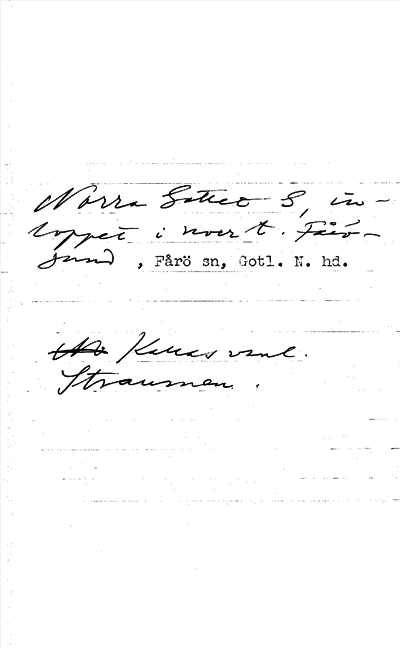 Norra Gattet S, in-
loppet i norr t. Fårö-
sund , Fårö sn, Gotl. N. hd.
No Kallas vanl.
Straumen.